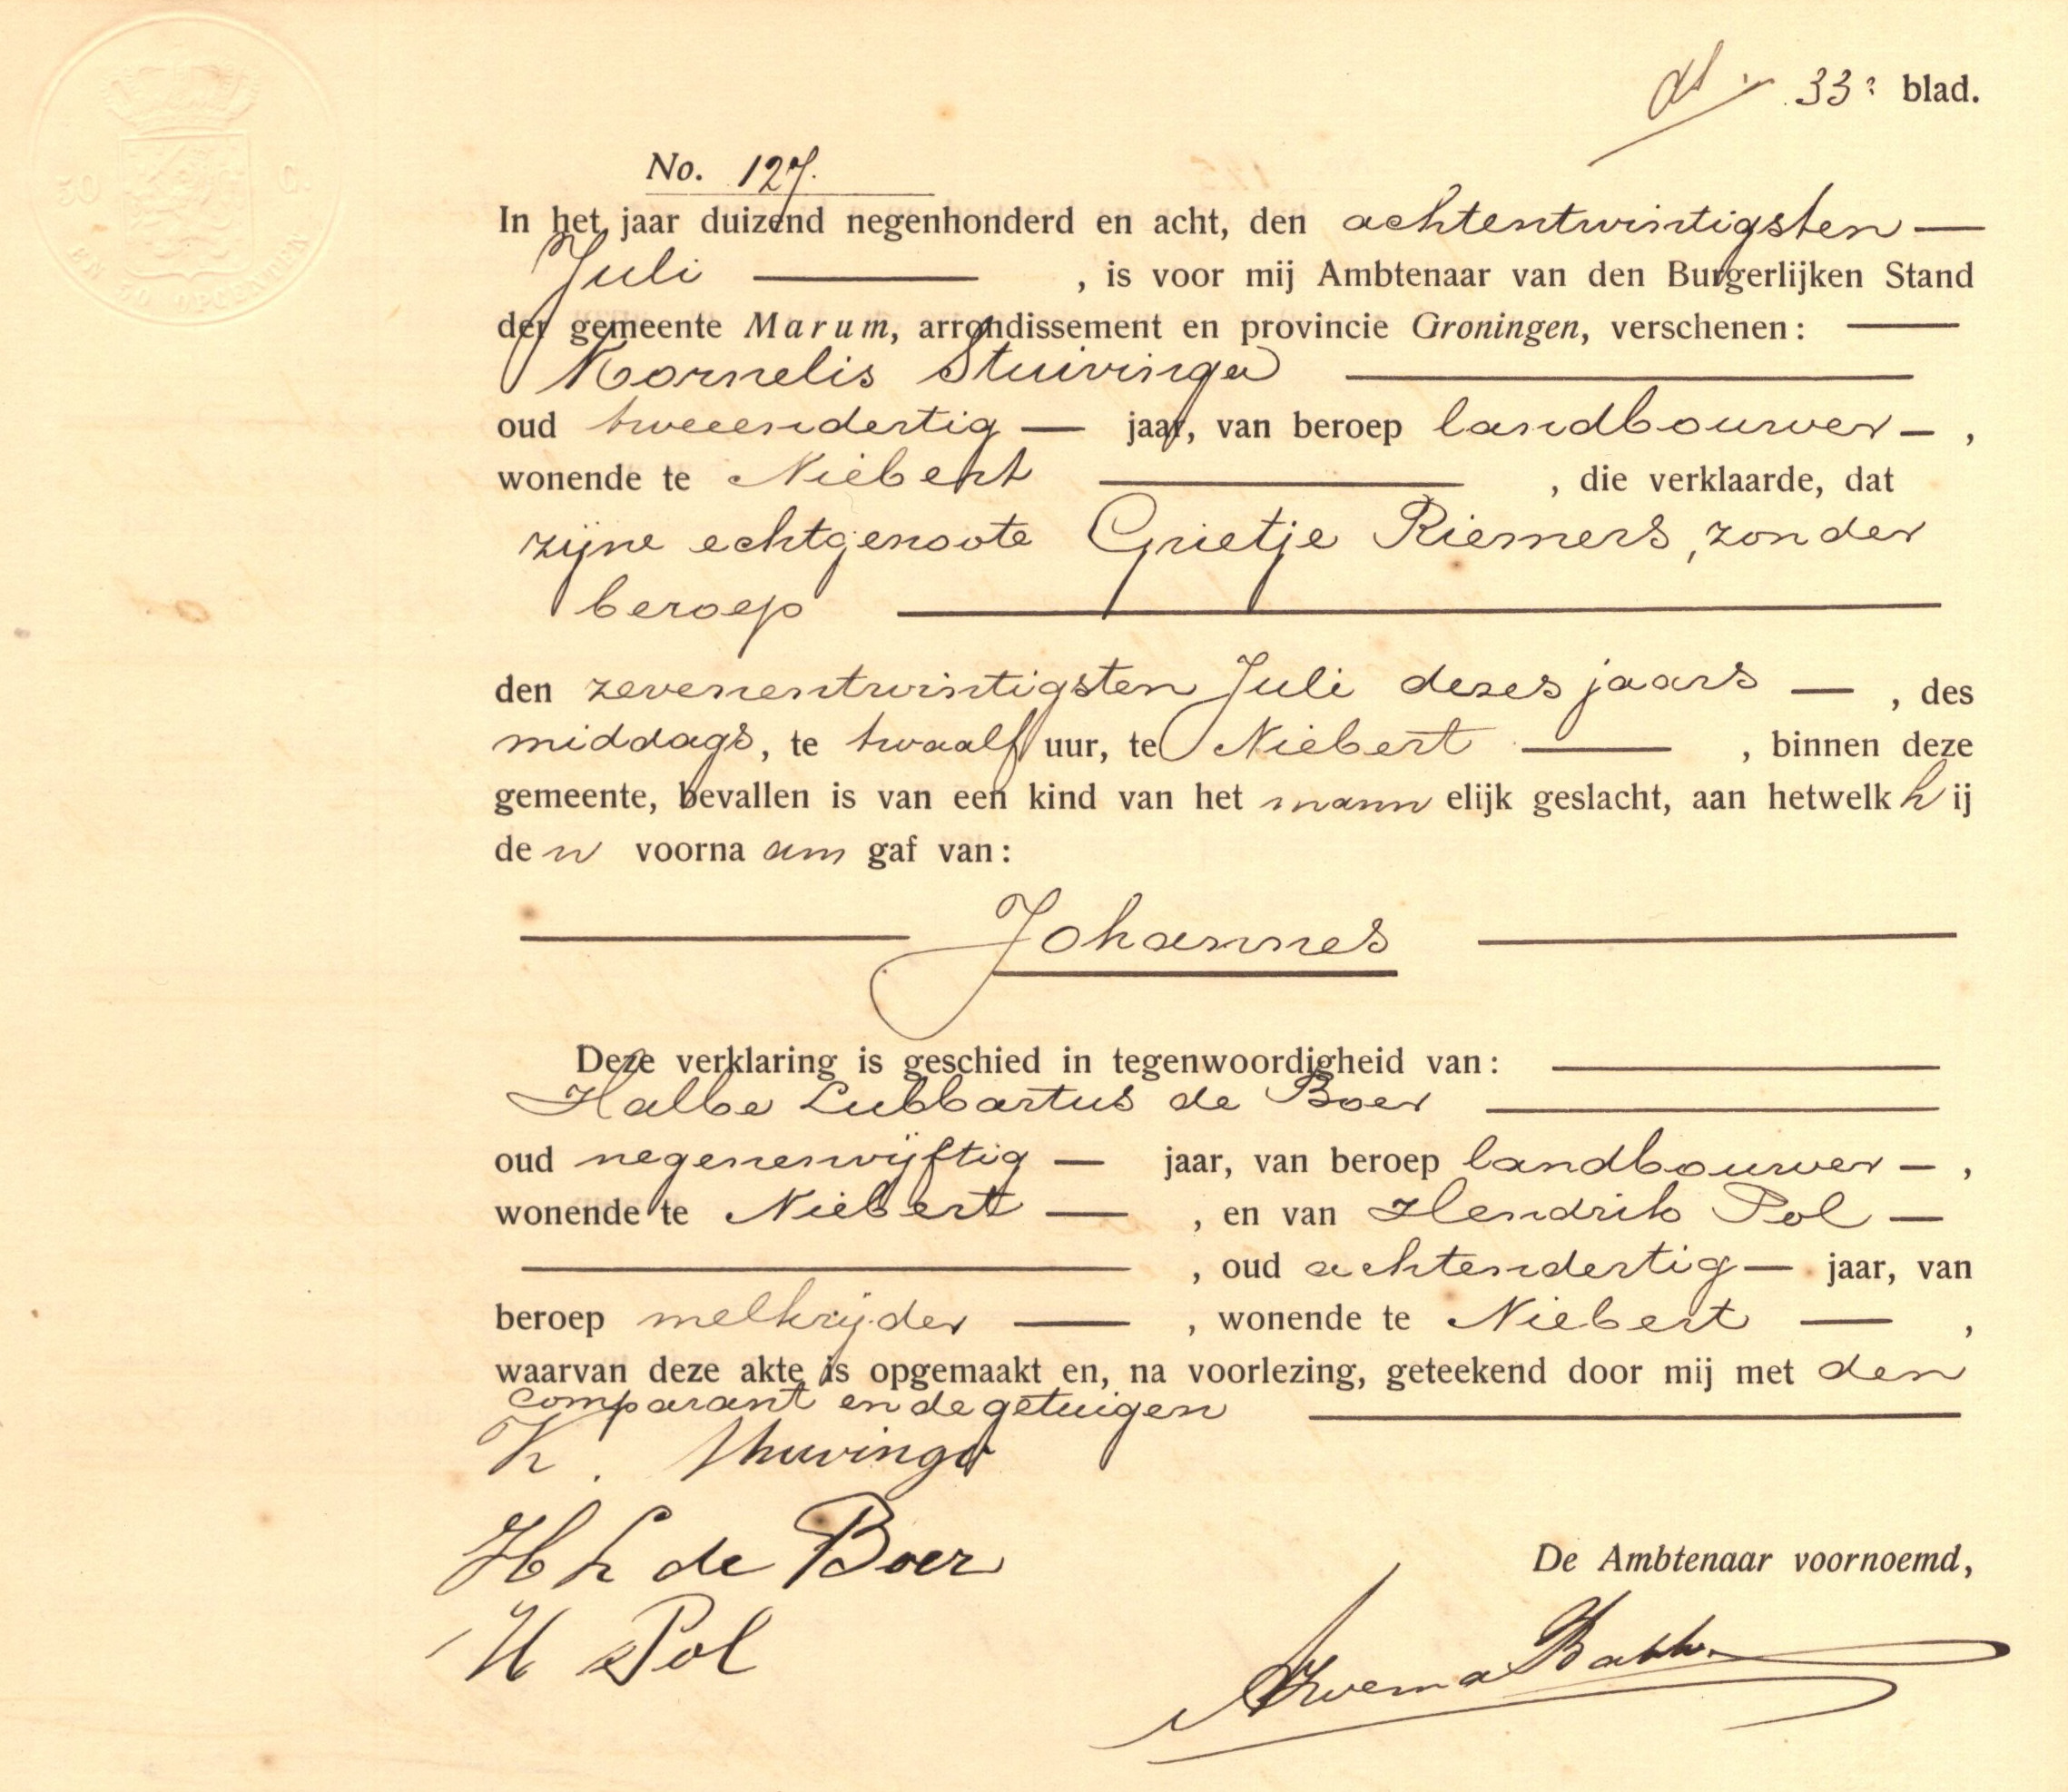 50 C.
EN 50 OPCENTEN
33e blad.
No. 127.
In het jaar duizend negenhonderd en acht, den achtentwintigsten
Juli , is voor mij Ambtenaar van den Burgerlijken Stand
der gemeente Marum, arrondissement en provincie Groningen, verschenen:
Kornelis Stuivinga
oud tweeendertig jaar, van beroep landbouwer ,
wonende te Niebert , die verklaarde, dat
zijne echtgenoote Grietje Riemers, zonder
beroep
den zevenentwintigsten Juli dezes jaars , des
middags, te twaalf uur, te Niebert , binnen deze
gemeente, bevallen is van een kind van het mannelijk geslacht, aan hetwelk hij
den voornaam gaf van:
Johannes
Deze verklaring is geschied in tegenwoordigheid van:
Halbe Lubbartus de Boer
oud negenenvijftig jaar, van beroep landbouwer ,
wonende te Niebert , en van Hendrik Pol
, oud achtendertig jaar, van
beroep melkrijder , wonende te Niebert ,
waarvan deze akte is opgemaakt en, na voorlezing, geteekend door mij met den
comparant en de getuigen
K. Stuivinga
H L de Boer
De Ambtenaar voornoemd,
H Pol